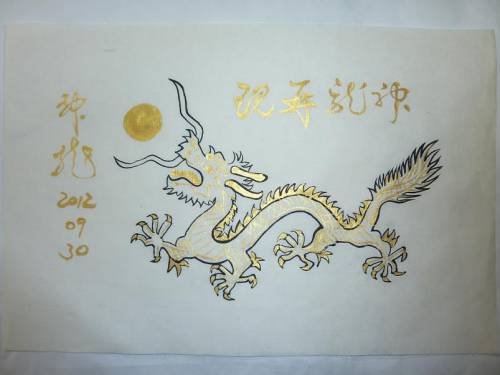 神龍再現
神龍
2012
09
30